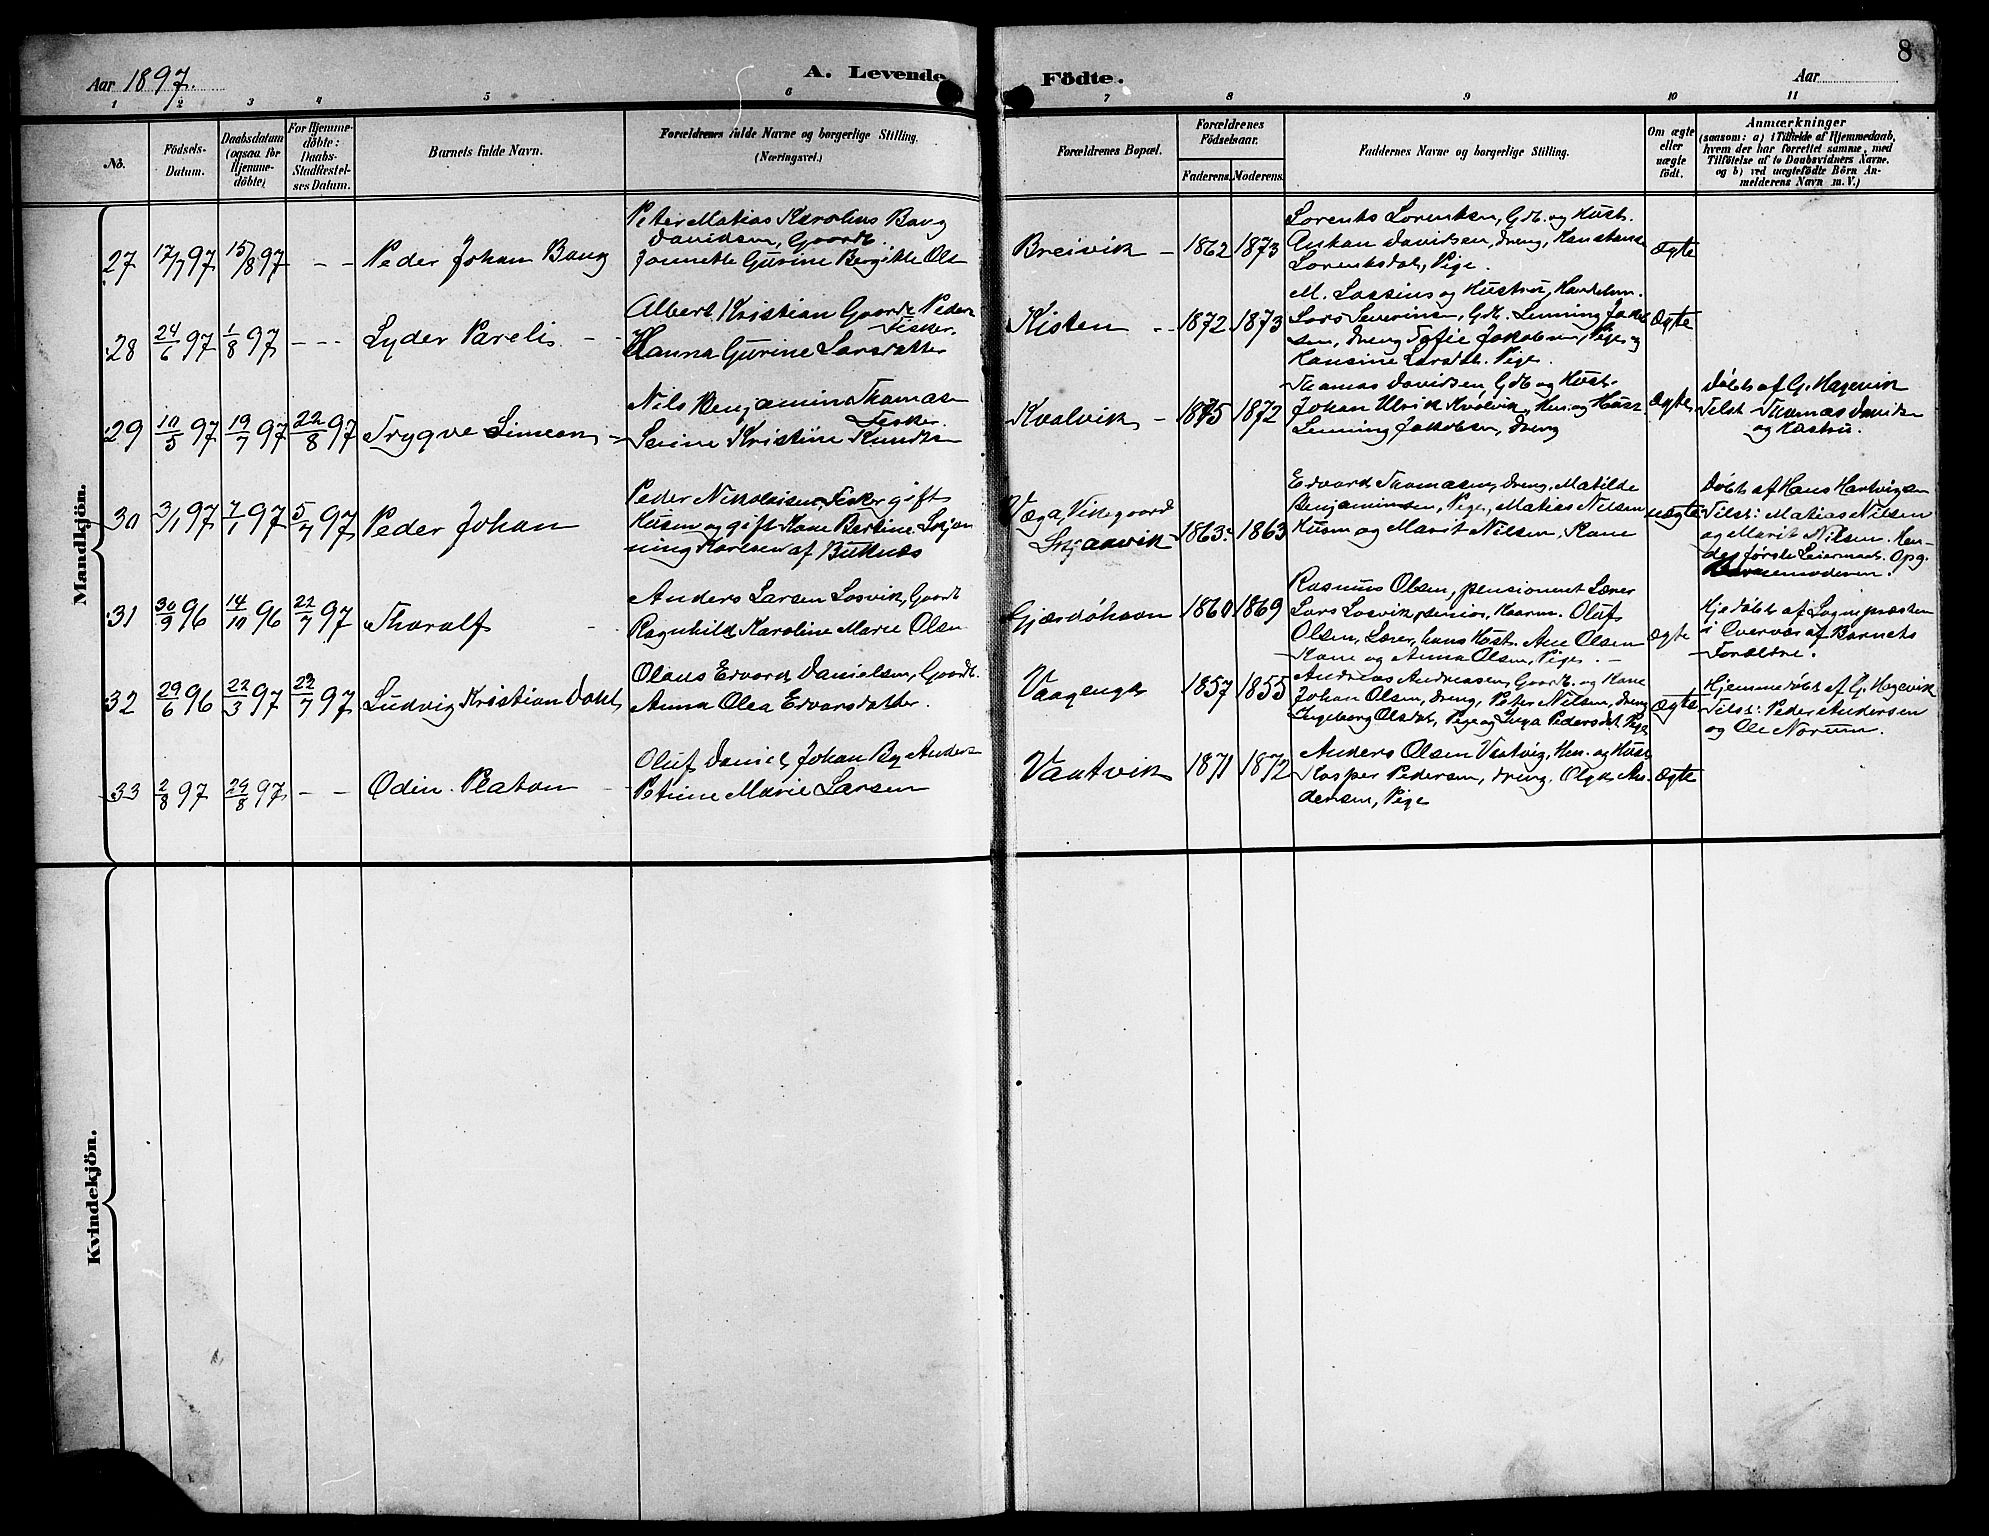 8
Aar 1897.
A. Levende
Födte.
Aar
1 2 3 4 5 6 7 8 9 10 11
No.
Födsels-
Datum.
Daabsdatum
(ogsaa for
Hjemme-
döbte)
For Hjemme-
döbte:
Daabs-
Stadfestel-
ses Datum.
Barnets fulde Navn.
Forældrenes fulde Navne og borgerlige Stilling.
(Næringsvei.)
Forældrenes Bopæl.
Forældrenes
Födselsaar.
Faderens.
Moderens.
Faddernes Navne og borgerlige Stilling.
Om ægte
eller
uægte
födt.
Anmærkninger
(saasom: a) i Tilfælde af Hjemmedaab,
hvem der har forrettet samme, med
Tilföielse af to Daabsvidners Navne.
og b) ved uægtefödte Börn An-
melderens Navn m. V.)
Mandkjön.
27 17/7 97 15/8 97 - - Peder Johan Bang
Peter Matias Karolius Bang
Davidsen, Gaardb.
Jannette Gurine Bergitte Ols
Breivik - 1862 1873
Lorents Lorentsen, Gdb. og Hust.
Antan Davidsen, dreng, Konstanse
Lorentsdat, Pige.
Ægte
28 24/6 97 1/8 97 - - - Lyder Parelis - -
Albert Kristian Gaarde Peder
Fisker.
Hanna Gurine Larsdatter
Kisten - - 1872 1873
M. Lossius og Hustru, Handelsm.
Lars Severins, Gdb. Lenning Jakob
sen, dreng Tofie Jakobsen, Pige og
Hansine Larsdt. Pige.
Ægte
29 10/5 97 19/7 97 22/8 97 Trygve Simeon -
Nils Benjamin Thomas
Fisker.
Serine Kristine Knudts
Kvalvik - 1875 1872
Thomas Davidsen, Gdb og Hust.
Johan Ulrik Kvalvik, Hm. og Hust
Lenning Jakobsen, dreng
Ægte
Döbt af G. Hagevik
Tilst. Thomas Davidsen
og Hustru.
30 3/1 97 7/1 97 5/7 97 Peder Johan
Peder Nikolaisen, Fisker gift
Husm og gift Kone Bertine
ning Karlsen af Buknæs
Væga, Vikegaard
1863. 1863
Edvard Thomassen, dreng, Matilde
Benjaminsen, Pige, Matias Nilsen
Husm og Marit Nilsen, Kone
uægte
Döbt af Hans Hartvigsen
Tilst: Matias Nilsen
og Marit Nilsen. Hen-
des förste Leiermaal. Opg.
Barnemoderen.
31 30/9 96 14/10 96 22/7 97 Tharalf -
Anders Larsen Losvik, Gaardb
Ragnhild Karoline Marie Olsen
1860 1869
Rasmus Olsen, pensioneret Lærer
Lars Losvik, senior, Kaarm. Oluf
Olsen, Lærer, hans Hust. Ane Olsen
Kone og Anna Olsen, Pige. -
ægte
Hjedöbt af Sogneprästen
i Overvær af Barnets
Forældre.
32 29/6 96 22/3 97 22/7 97 Ludvig Kristian Dahl,
Olaus Edvard Danielsen, Gaardb.
Anna Olea Edvarsdatter.
Vaagenga 1857 1855
Andreas Andreasen, Gaardb. og Kone
Johan Olsen, dreng, Peter Nilsen, dreng
Ingeborg Olsdat, Pige og Inga Pedersdt. Pige
Ægte
Hjemmedöbt af G. Hagevik
Tilst: Peder Andersen
og Ole Norum.
33 2/8 97 29/8 97 - - Odin Platon -
Oluf Daniel Johan By Anders
Petrine Marie Larsen
Vaatvik 1871 1872
Anders Olsen Vaatvig, Hm. og Hust
Kasper Pedersen, dreng. Olga An-
dersen, Pige
Ægte
Kvindekjön.